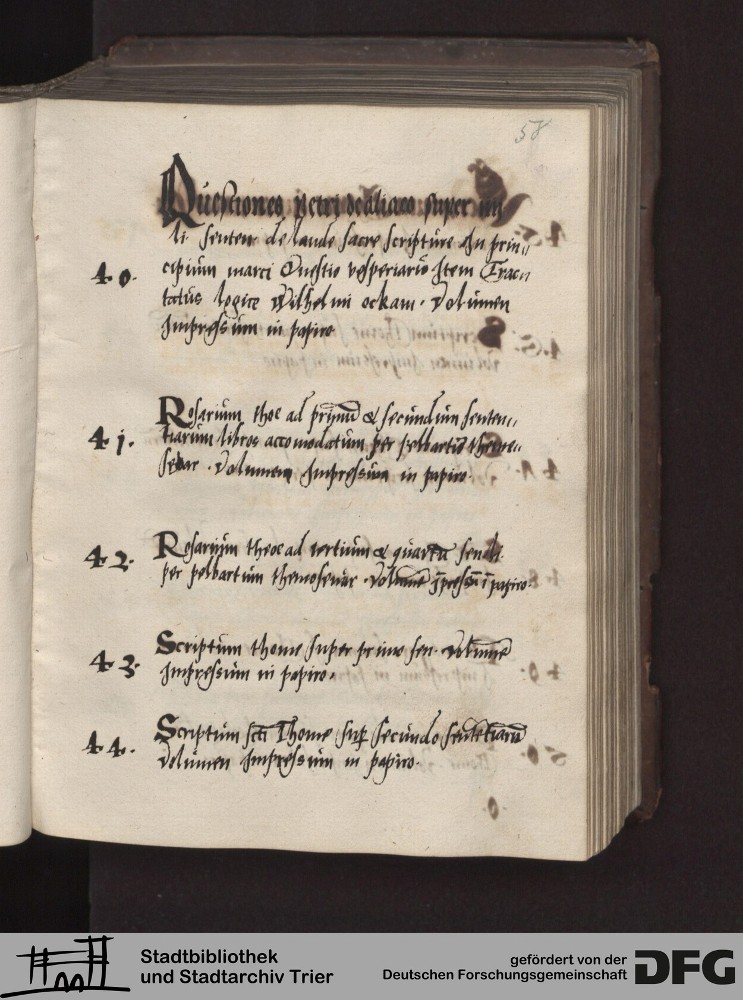 58
Questiones petri de aliaco super
li senten de laude sacre scripture In prin„
40. cipium marci Questio vesperiarū Item Trac„
tatus logice Wilhelmi ockam. Volumen
Impressum in papiro
Rosarium theo ad primū & secundum senten„
41. tiarum libros accomodatum per pelbartū theme„
Volumen Impressum in papiro.
Rosarium theo ad tertium & quartū
42. per pelbartum themeswar. Volumē īpressū ī papiro.
Scriptum thome super primo sen. Volumē
43. Impressum in papiro.
Scriptum scti Thome sup secundo sententiarū
44. Volumen Impressum in papiro.
Stadtbibliothek
und Stadtarchiv Trier
gefördert von der
Deutschen Forschungsgemeinschaft
DFG